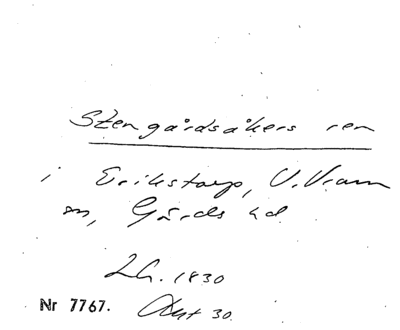 Stengårdsåkers ren
i Erikstorp, V. Vram
sn, Gärds hd.
Lh. 1830
Nr 7767. Akt 30.